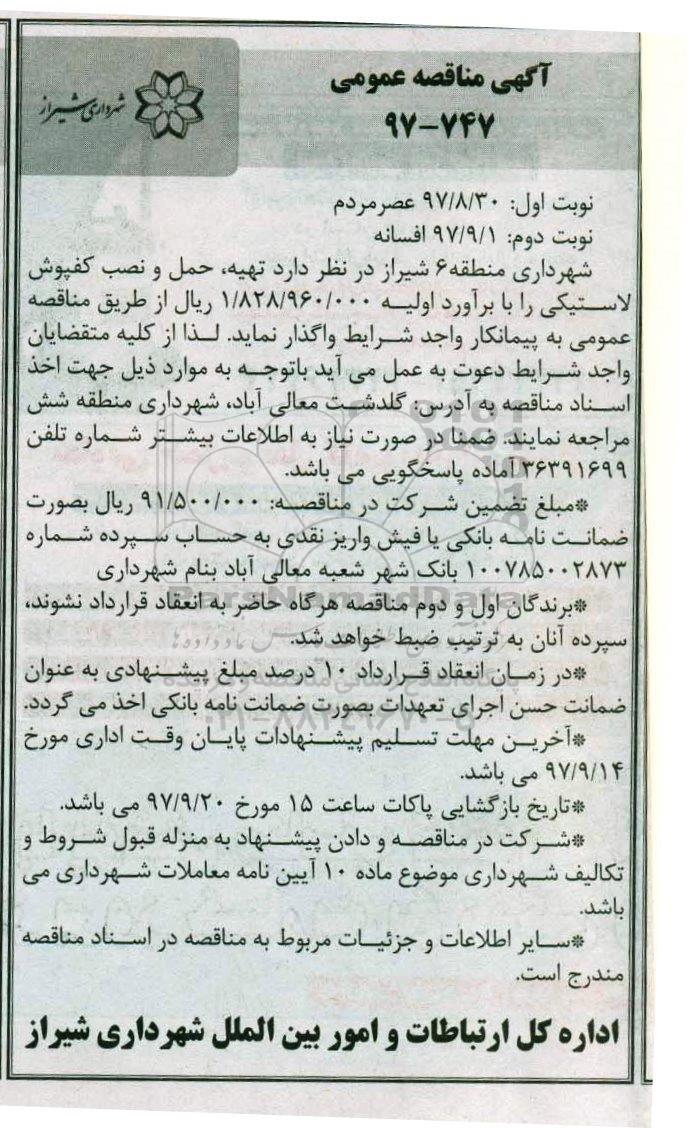 آگهی مناقصه عمومی
۹۷-۷۴۷
شهرداری شیراز
نوبت اول: ۹۷/۸/۳۰ عصرمردم
نوبت دوم: ۹۷/۹/۱ افسانه
شهرداری منطقه۶ شیراز در نظر دارد تهیه، حمل و نصب کفپوش
لاستیکی را با برآورد اولیه ۱/۸۲۸/۹۶۰/۰۰۰ ریال از طریق مناقصه
عمومی به پیمانکار واجد شرایط واگذار نماید. لذا از کلیه متقضایان
واجد شرایط دعوت به عمل می آید باتوجه به موارد ذیل جهت اخذ
اسناد مناقصه به آدرس: گلدشت معالی آباد، شهرداری منطقه شش
مراجعه نمایند. ضمنا در صورت نیاز به اطلاعات بیشتر شماره تلفن
۳۶۳۹۱۶۹۹ آماده پاسخگویی می باشد.
*مبلغ تضمین شرکت در مناقصه: ۹۱/۵۰۰/۰۰۰ ریال بصورت
ضمانت نامه بانکی یا فیش واریز نقدی به حساب سپرده شماره
۱۰۰۷۸۵۰۰۲۸۷۳ بانک شهر شعبه معالی آباد بنام شهرداری
ParsNamadData
*برندگان اول و دوم مناقصه هرگاه حاضر به انعقاد قرارداد نشوند،
سپرده آنان به ترتیب ضبط خواهد شد.
*در زمان انعقاد قرارداد ۱۰ درصد مبلغ پیشنهادی به عنوان
ضمانت حسن اجرای تعهدات بصورت ضمانت نامه بانکی اخذ می گردد.
*آخرین مهلت تسلیم پیشنهادات پایان وقت اداری مورخ
۹۷/۹/۱۴ می باشد.
*تاریخ بازگشایی پاکات ساعت ۱۵ مورخ ۹۷/۹/۲۰ می باشد.
*شرکت در مناقصه و دادن پیشنهاد به منزله قبول شروط و
تکالیف شهرداری موضوع ماده ۱۰ آیین نامه معاملات شهرداری می
باشد.
*سایر اطلاعات و جزئیات مربوط به مناقصه در اسناد مناقصه
مندرج است.
اداره کل ارتباطات و امور بین الملل شهرداری شیراز